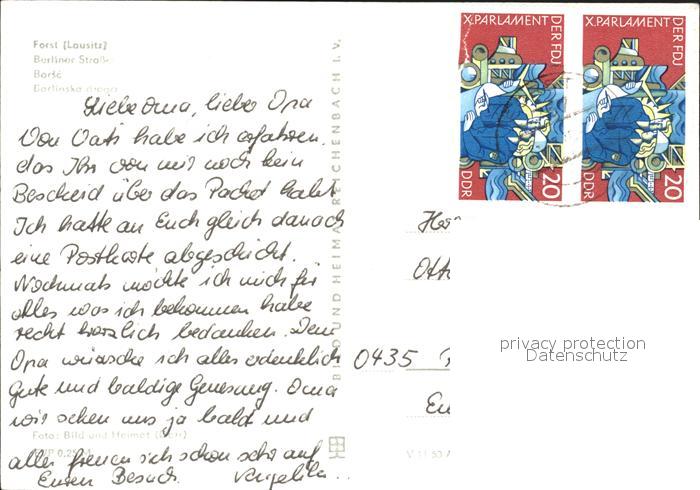 Forst (Lausitz)
Berliner Straße
Baršć
Barlinska droga
Liebe Oma, lieber Opa
Von Vati habe ich erfahren.
das Ihr von mir noch kein
Bescheid über das Packet habt
Ich hatte an Euch gleich danach
eine Postkarte abgeschickt.
Nochmals möchte ich mich für
alles was ich bekommen habe
recht herzlich bedanken. Dem
Opa wünsche ich alles erdenklich
Gute und baldige Genesung. Oma
wir sehen uns ja bald und
alle freuen sich schon sehr auf
Euren Besuch.
Foto: Bild und Heimat
EVP 0,25 M
BILD UND HEIMAT REICHENBACH I. V.
X. PARLAMENT DER FDJ
DDR 20
X. PARLAMENT DER FDJ
DDR 20
Ott
0435
V 11 53 A
privacy protection
Datenschutz